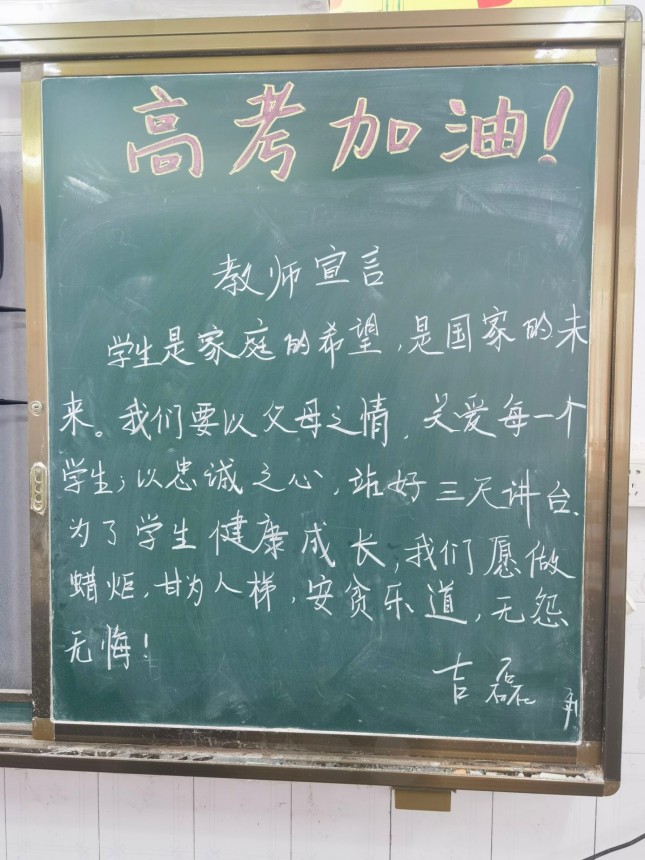 高考加油!
教师宣言
学生是家庭的希望,是国家的未
来。我们要以父母之情,关爱每一个
学生;以忠诚之心,站好三尺讲台.
为了学生健康成长,我们愿做
蜡炬,甘为人梯,安贫乐道,无怨
无悔!
吉磊